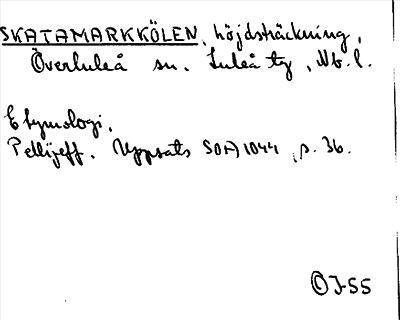 SKATAMARKKÖLEN, höjdsträckning,
Överluleå sn. Luleå tg, Nb. l.
Etymologi.
Pellijeff. Uppsats SOFI 1044, s. 36.
OJ-55